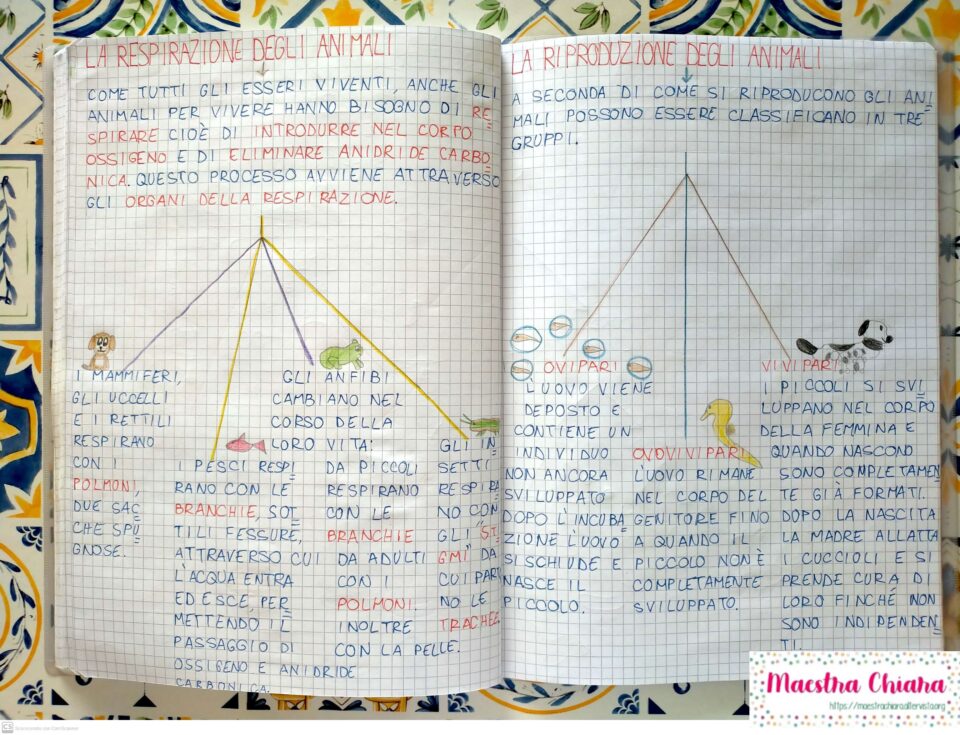 LA RESPIRAZIONE DEGLI ANIMALI
COME TUTTI GLI ESSERI VIVENTI, ANCHE GLI
ANIMALI PER VIVERE HANNO BISOGNO DI RE
SPIRARE CIOÈ DI INTRODURRE NEL CORPO
OSSIGENO E DI ELIMINARE ANIDRIDE CARBO
NICA. QUESTO PROCESSO AVVIENE ATTRAVERSO
GLI ORGANI DELLA RESPIRAZIONE.
I MAMMIFERI,
GLI UCCELLI
E I RETTILI
RESPIRANO
CON I
POLMONI,
DUE SAC
CHE SPU
GNOSE.
I PESCI RESPI
RANO CON LE
BRANCHIE, SOT
TILI FESSURE,
ATTRAVERSO CUI
L'ACQUA ENTRA
ED ESCE, PER
METTENDO IL
PASSAGGIO DI
OSSIGENO E ANIDRIDE
CARBONICA
GLI ANFIBI
CAMBIANO NEL
CORSO DELLA
LORO VITA:
DA PICCOLI
RESPIRANO
CON LE
BRANCHIE
DA ADULTI
CON I
POLMONI.
INOLTRE
CON LA PELLE.
GLI IN
SETTI
RESPIRA
NO CON
GLI "STI
GMI" DA
CUI PARTO
NO LE
TRACHEE
LA RIPRODUZIONE DEGLI ANIMALI
A SECONDA DI COME SI RIPRODUCONO GLI ANI
MALI POSSONO ESSERE CLASSIFICANO IN TRE
GRUPPI.
OVIPARI
L'UOVO VIENE
DEPOSTO E
CONTIENE UN
INDIVIDUO
NON ANCORA
SVILUPPATO
DOPO L'INCUBA
ZIONE L'UOVO
SI SCHIUDE E
NASCE IL
PICCOLO.
OVOVIVIPARI
L'UOVO RIMANE
NEL CORPO DEL
GENITORE FINO
A QUANDO IL
PICCOLO NON È
COMPLETAMENTE
SVILUPPATO.
VIVIPARI
I PICCOLI SI SVI
LUPPANO NEL CORPO
DELLA FEMMINA E
QUANDO NASCONO
SONO COMPLETAMEN
TE GIÀ FORMATI.
DOPO LA NASCITA
LA MADRE ALLATTA
I CUCCIOLI E SI
PRENDE CURA DI
LORO FINCHÉ NON
SONO INDIPENDEN
TI.
Maestra Chiara
https://maestrachiara.altervista.org
CS